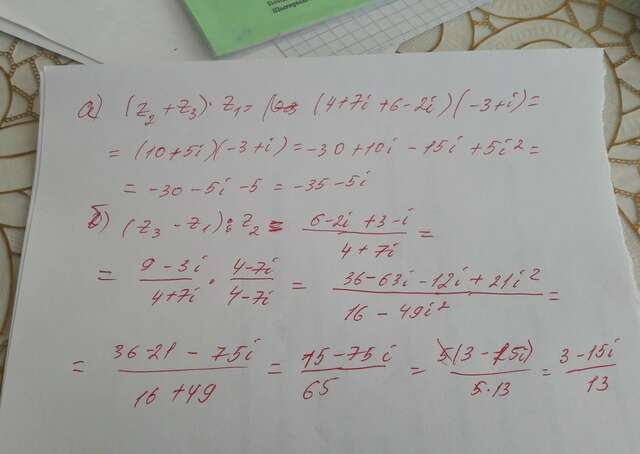 а) (z₂ + z₃) · z₁ = (4+7i +6-2i)(-3+i) =
= (10+5i)(-3+i) = -30+10i - 15i +5i² =
= -30 -5i -5 = -35 -5i
б) (z₃ - z₁) : z₂ = (6-2i +3-i)/(4+7i) =
= (9-3i)/(4+7i) · (4-7i)/(4-7i) = (36-63i-12i+21i²)/(16-49i²) =
= (36-21-75i)/(16+49) = (15-75i)/65 = 5(3-15i)/(5·13) = (3-15i)/13